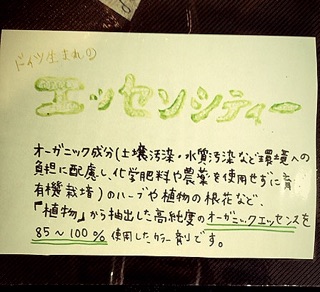 ドイツ生まれの
エッセンシティー
オーガニック成分(土壌汚染・水質汚染など環境への
負担に配慮し、化学肥料や農薬を使用せずに育
有機栽培)のハーブや植物の根花など、
『植物』から抽出した高純度のオーガニックエッセンスを
85~100%使用したカラー剤です。